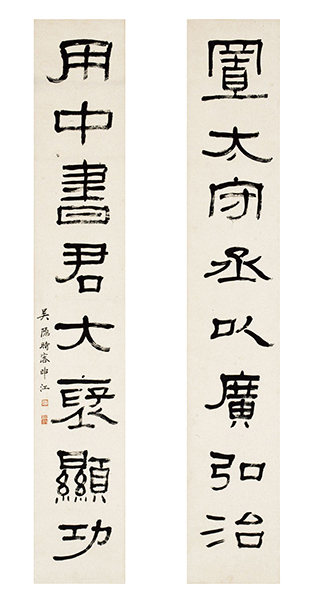 置太守丞以廣弘治
用中書君大褒顯功
吳隱時客申江